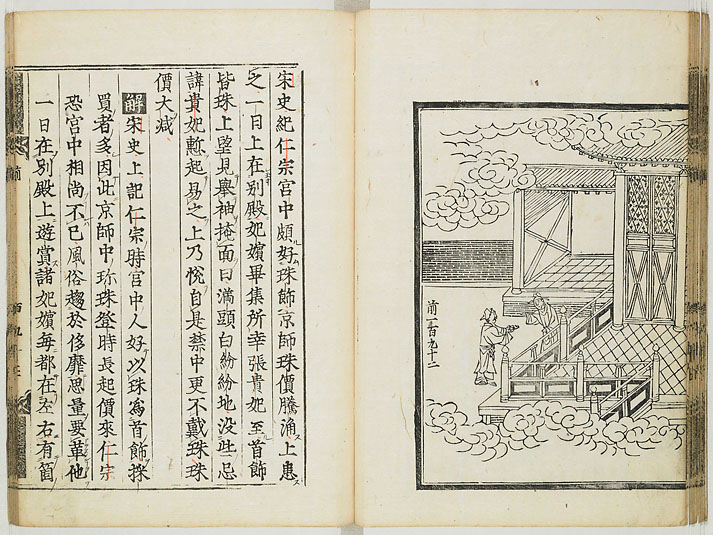 前一百九十二
宋史紀仁宗宮中頗好珠飾京師珠價騰湧上患
之一日上在別殿妃嬪畢集所幸張貴妃至首飾
皆珠上望見舉袖掩面曰滿頭白紛紛地没些忌
諱貴妃慙起易之上乃悅自是禁中更不戴珠珠
價大减
解宋史上記仁宗時宮中人好以珠爲首飾採
買者多因此京師中珎珠登時長起價來仁宗
恐宮中相尚不已風俗趨於侈靡思量要革他
一日在別殿上遊賞諸妃嬪每都在左右有箇
前